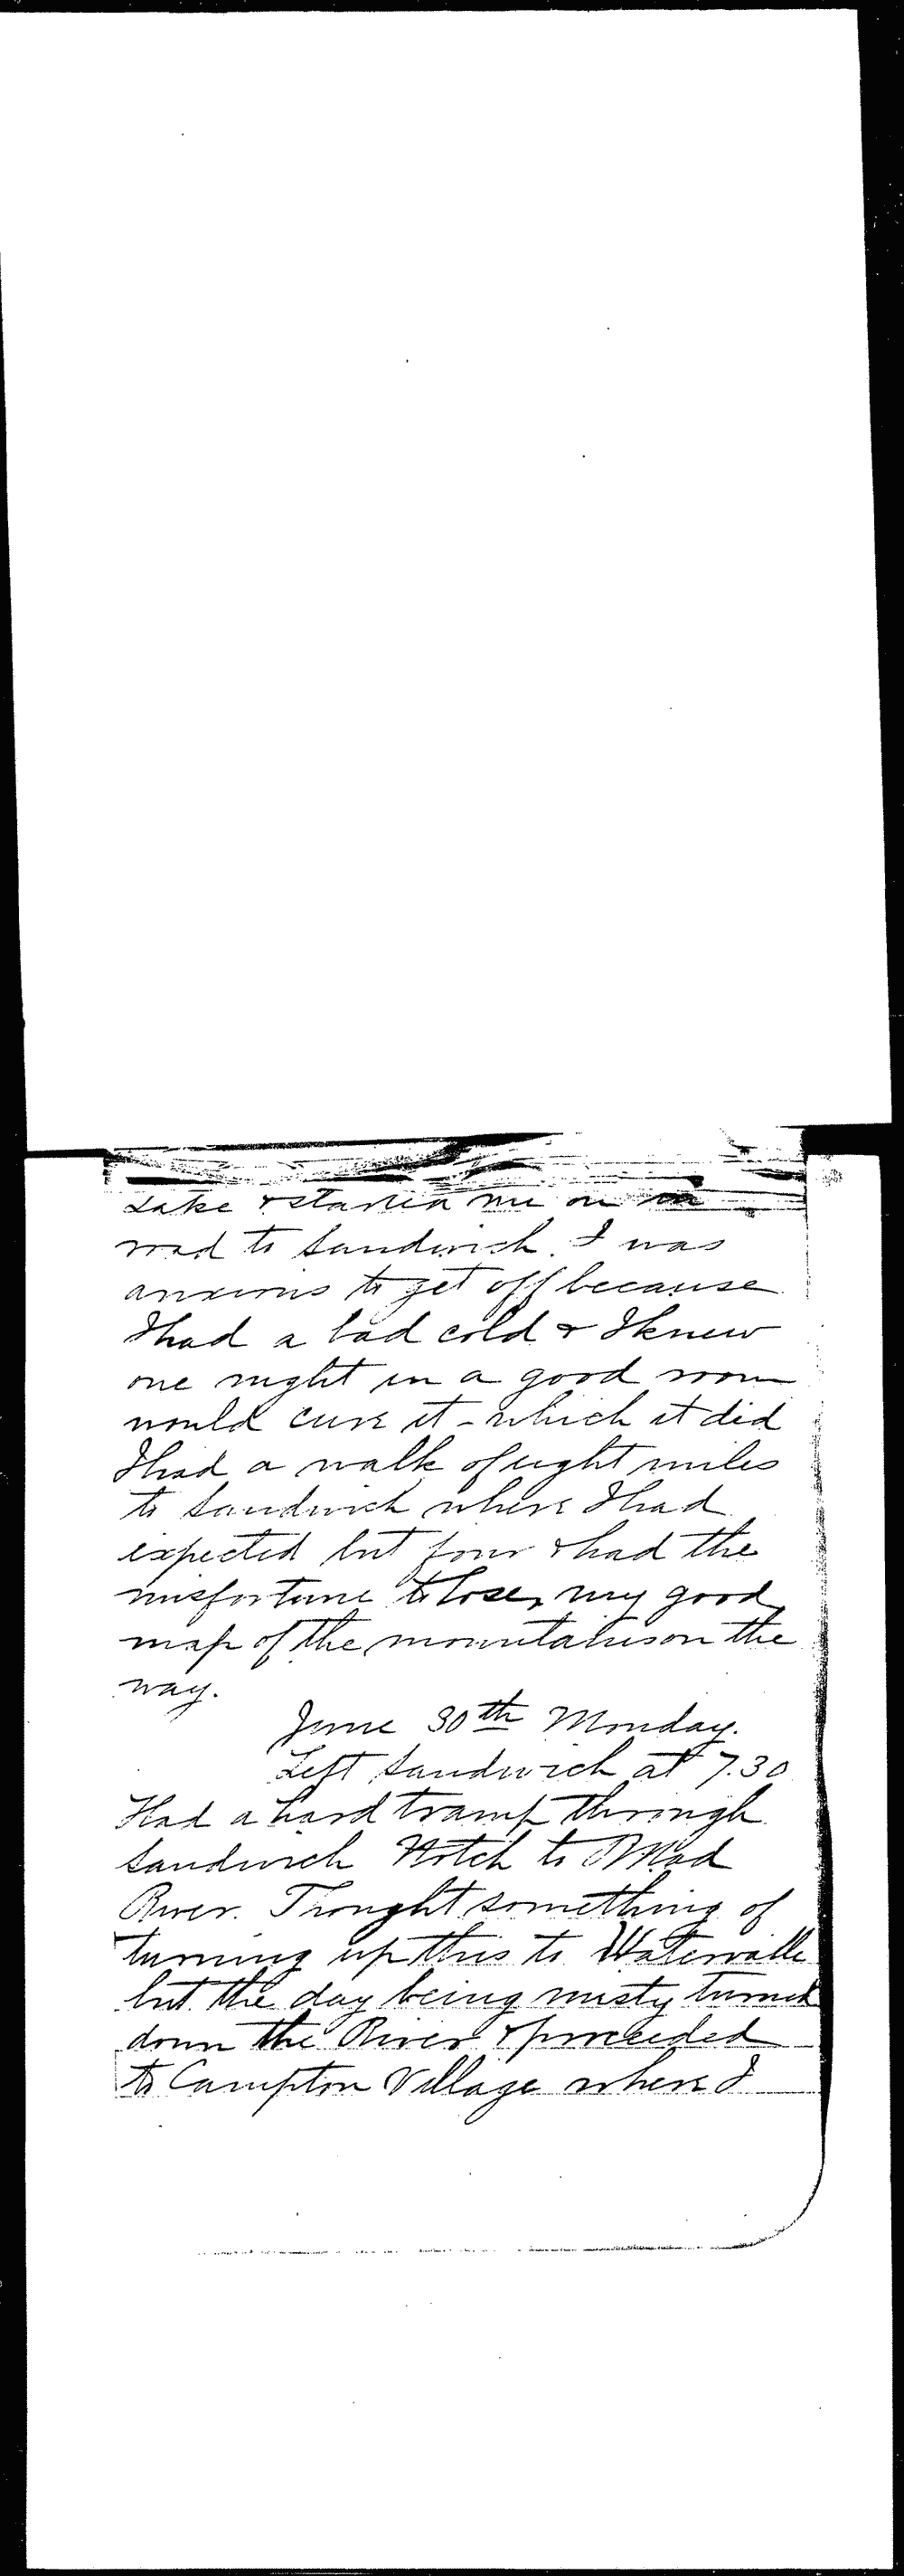 Lake & started me on
road to Sandwich. I was
anxious to get off because
I had a bad cold & I knew
one night in a good room
would cure it - which it did
I had a walk of eight miles
to Sandwich where I had
expected but four & had the
misfortune to lose, my good
map of the mountains on the
way.
June 30th Monday.
Left Sandwich at 7.30
Had a hard tramp through
Sandwich Notch to Mad
River. Thought something of
turning up this to Waterville
but the day being misty turned
down the River & proceeded
to Campton Village where I